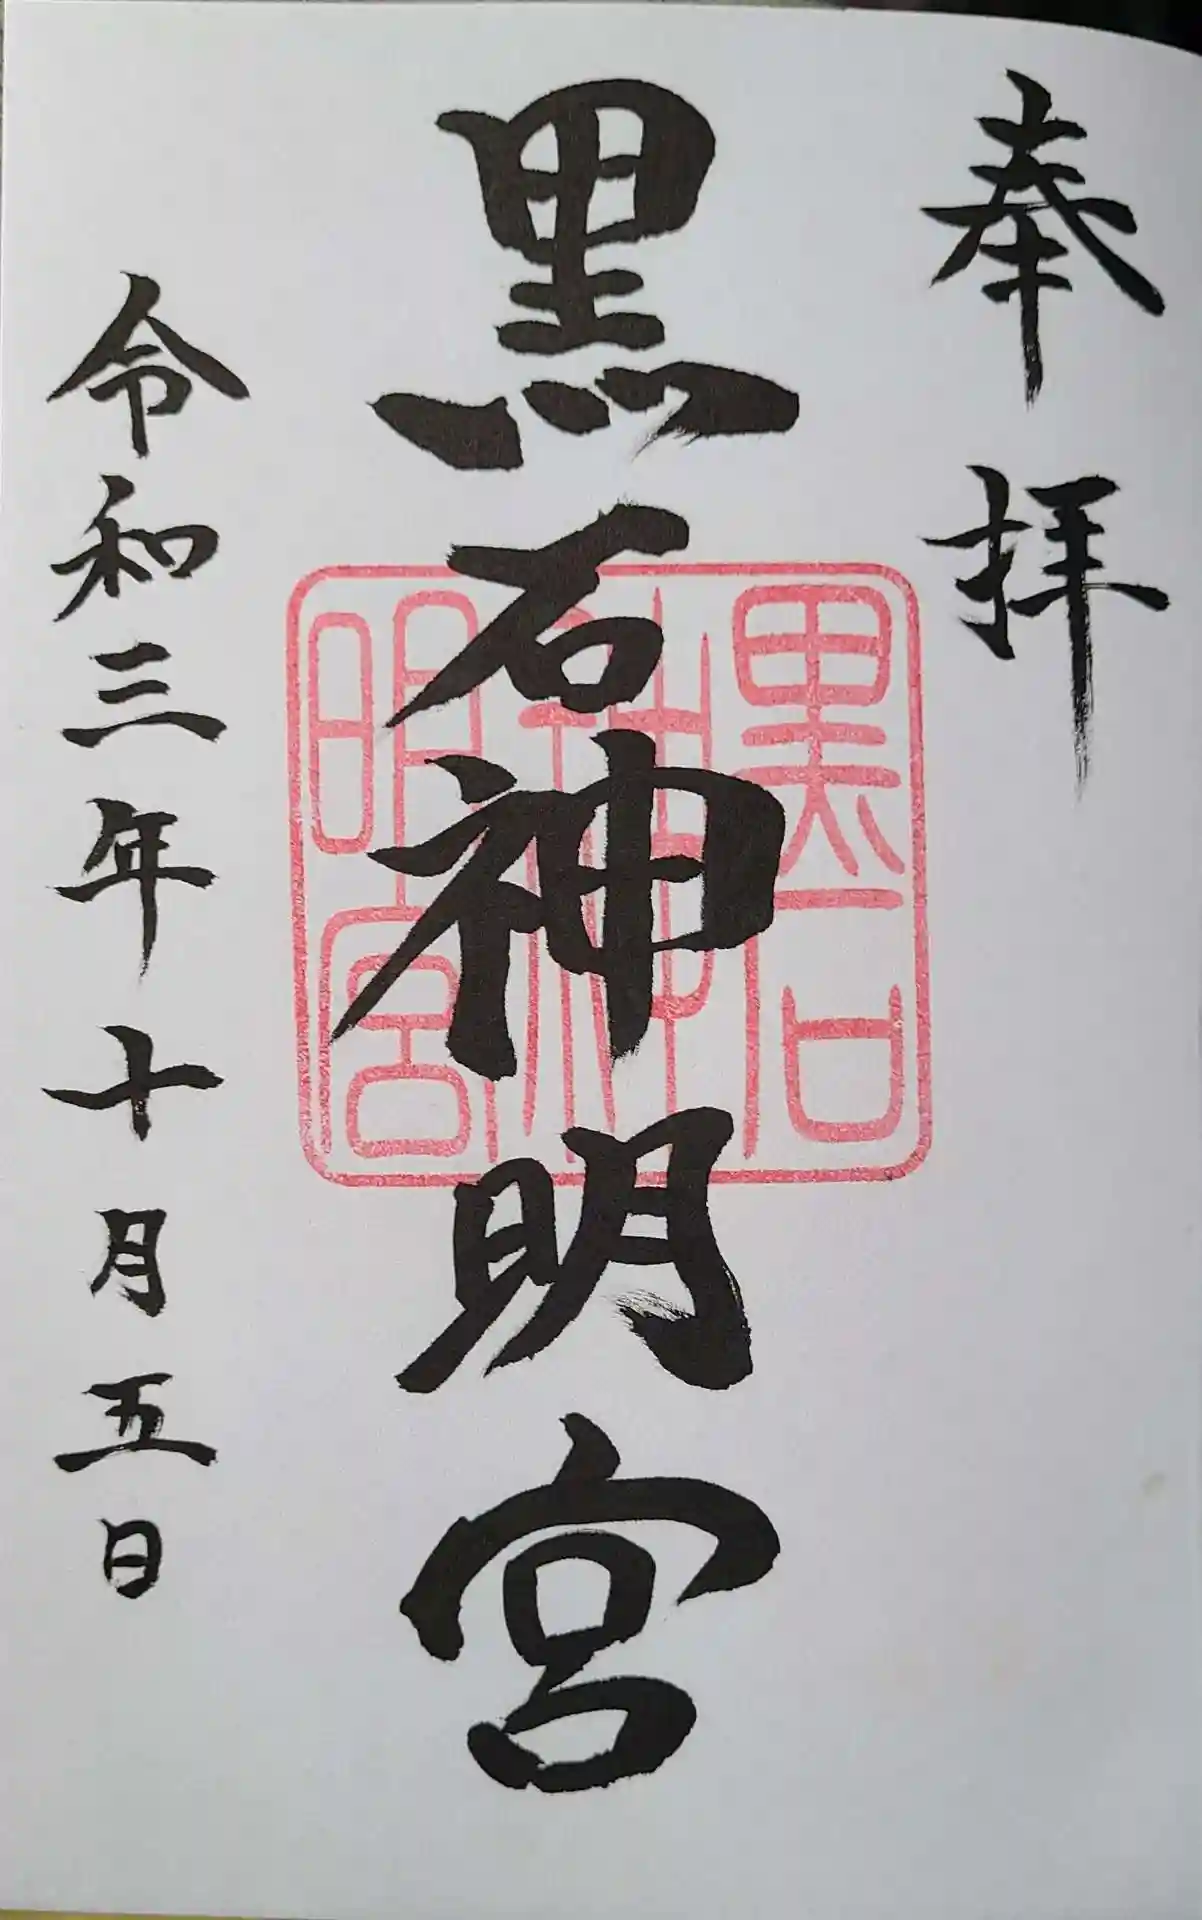 奉拝
黒石神明宮
黒石
神社
明宮
令和三年十月五日